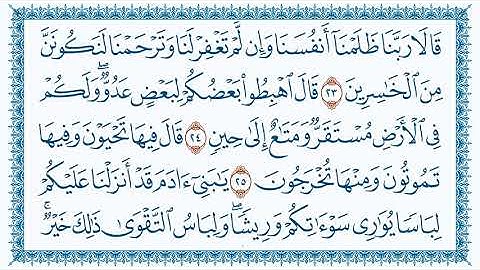 قَالَا رَبَّنَا ظَلَمْنَآ أَنفُسَنَا وَإِن لَّمْ تَغْفِرْ لَنَا وَتَرْحَمْنَا لَنَكُونَنَّ
مِنَ ٱلْخَٰسِرِينَ ٢٣ قَالَ ٱهْبِطُوا۟ بَعْضُكُمْ لِبَعْضٍ عَدُوٌّ ۖ وَلَكُمْ
فِى ٱلْأَرْضِ مُسْتَقَرٌّ وَمَتَٰعٌ إِلَىٰ حِينٍ ٢٤ قَالَ فِيهَا تَحْيَوْنَ وَفِيهَا
تَمُوتُونَ وَمِنْهَا تُخْرَجُونَ ٢٥ يَٰبَنِىٓ ءَادَمَ قَدْ أَنزَلْنَا عَلَيْكُمْ
لِبَاسًا يُوَٰرِى سَوْءَٰتِكُمْ وَرِيشًا ۖ وَلِبَاسُ ٱلتَّقْوَىٰ ذَٰلِكَ خَيْرٌ ۚ